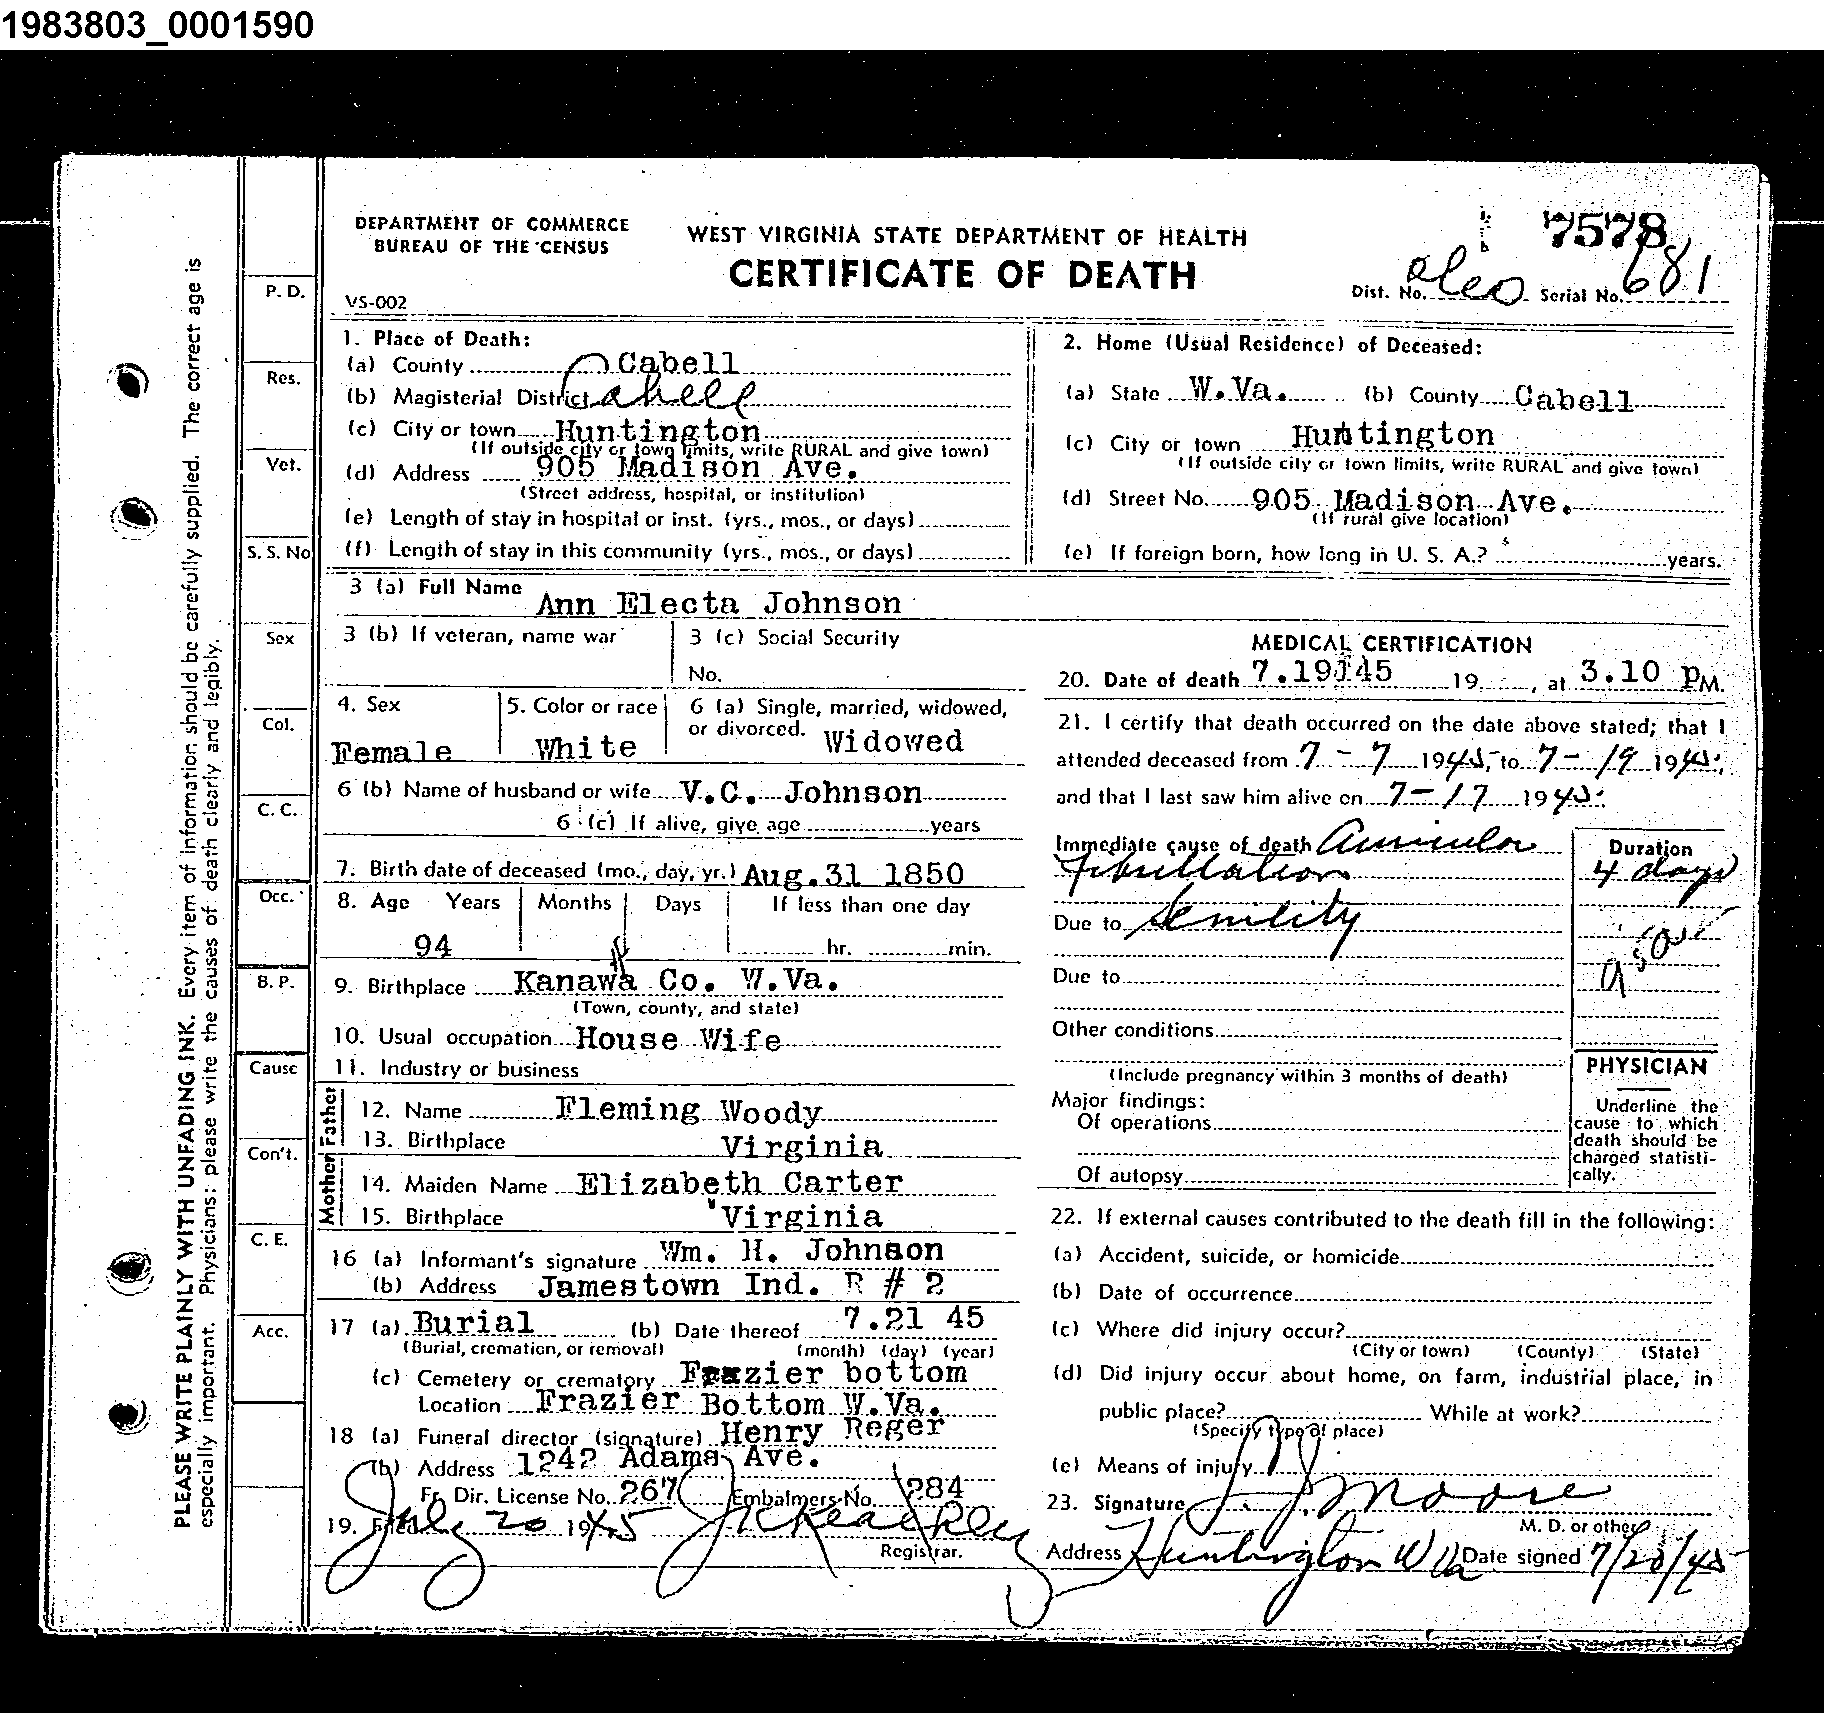 1983803_0001590
DEPARTMENT OF COMMERCE
BUREAU OF THE CENSUS
WEST VIRGINIA STATE DEPARTMENT OF HEALTH
CERTIFICATE OF DEATH
7578
VS-002
Dist. No. Serial No. 681
1. Place of Death:
(a) County Cabell
(b) Magisterial District Cabell
(c) City or town Huntington
(If outside city or town limits, write RURAL and give town)
(d) Address 905 Madison Ave.
(Street address, hospital, or institution)
(e) Length of stay in hospital or inst. (yrs., mos., or days)
(f) Length of stay in this community (yrs., mos., or days)
2. Home (Usual Residence) of Deceased:
(a) State W.Va. (b) County Cabell
(c) City or town Huntington
(If outside city or town limits, write RURAL and give town)
(d) Street No. 905 Madison Ave.
(If rural give location)
(e) If foreign born, how long in U. S. A.? years.
3 (a) Full Name Ann Electa Johnson
3 (b) If veteran, name war
3 (c) Social Security
No.
4. Sex
Female
5. Color or race
White
6 (a) Single, married, widowed,
or divorced. Widowed
6 (b) Name of husband or wife V.C. Johnson
6 (c) If alive, give age years
7. Birth date of deceased (mo., day, yr.) Aug.31 1850
8. Age Years Months Days If less than one day
94 hr. min.
9. Birthplace Kanawa Co. W.Va.
h
(Town, county, and state)
10. Usual occupation House Wife
11. Industry or business
Father
12. Name Fleming Woody
13. Birthplace Virginia
Mother
14. Maiden Name Elizabeth Carter
15. Birthplace Virginia
16 (a) Informant's signature Wm. H. Johnson
(b) Address Jamestown Ind. R # 2
17 (a) Burial (b) Date thereof 7.21 45
(Burial, cremation, or removal) (month) (day) (year)
(c) Cemetery or crematory Frazier bottom
Location Frazier Bottom W.Va.
18 (a) Funeral director (signature) Henry Reger
(b) Address 1242 Adams Ave.
Fr. Dir. License No. 267 Embalmers No. 284
19. Filed July 20 1945
Registrar.
MEDICAL CERTIFICATION
20. Date of death 7.19 45 19 , at 3.10 P M.
21. I certify that death occurred on the date above stated; that I
attended deceased from 7-7 1945, to 7-19 1945.
and that I last saw him alive on 7-17 1945.
Immediate cause of death Auricular
Fibrillation
Duration
4 days
Due to Senility
Due to
Other conditions
(Include pregnancy within 3 months of death)
Major findings:
Of operations
Of autopsy
PHYSICIAN
Underline the
cause to which
death should be
charged statisti-
cally.
22. If external causes contributed to the death fill in the following:
(a) Accident, suicide, or homicide
(b) Date of occurrence
(c) Where did injury occur?
(City or town) (County) (State)
(d) Did injury occur about home, on farm, industrial place, in
public place? While at work?
(Specify type of place)
(e) Means of injury
23. Signature Moore
M. D. or other
Address Huntington W Va Date signed 7/20/45
P. D.
Res.
Vet.
S. S. No
Sex
Col.
C. C.
Occ.
B. P.
Cause
Con't.
C. E.
Acc.
PLEASE WRITE PLAINLY WITH UNFADING INK. Every item of information should be carefully supplied. The correct age is
especially important. Physicians: please write the causes of death clearly and legibly.